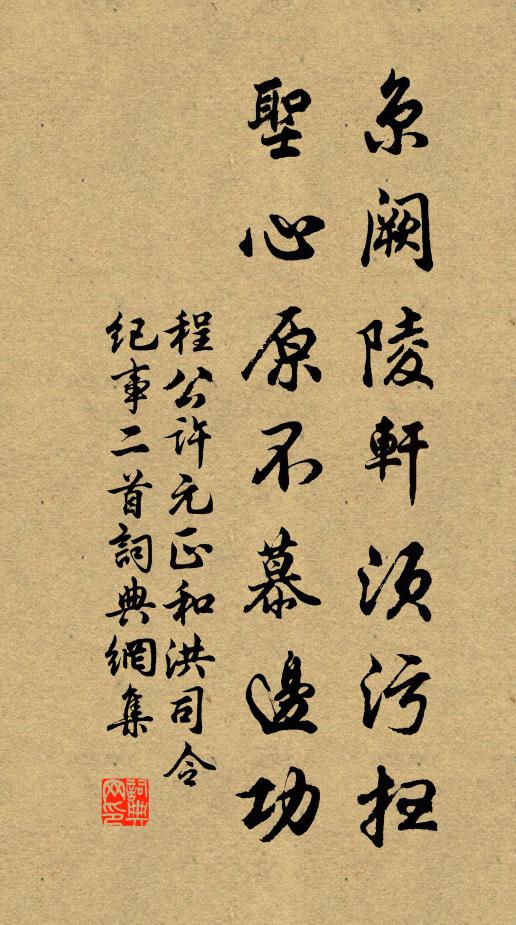 京闕陵軒須污扫
聖心原不慕邊功
程公許元正和洪司令
紀事二首詞典網集
詞典
网印